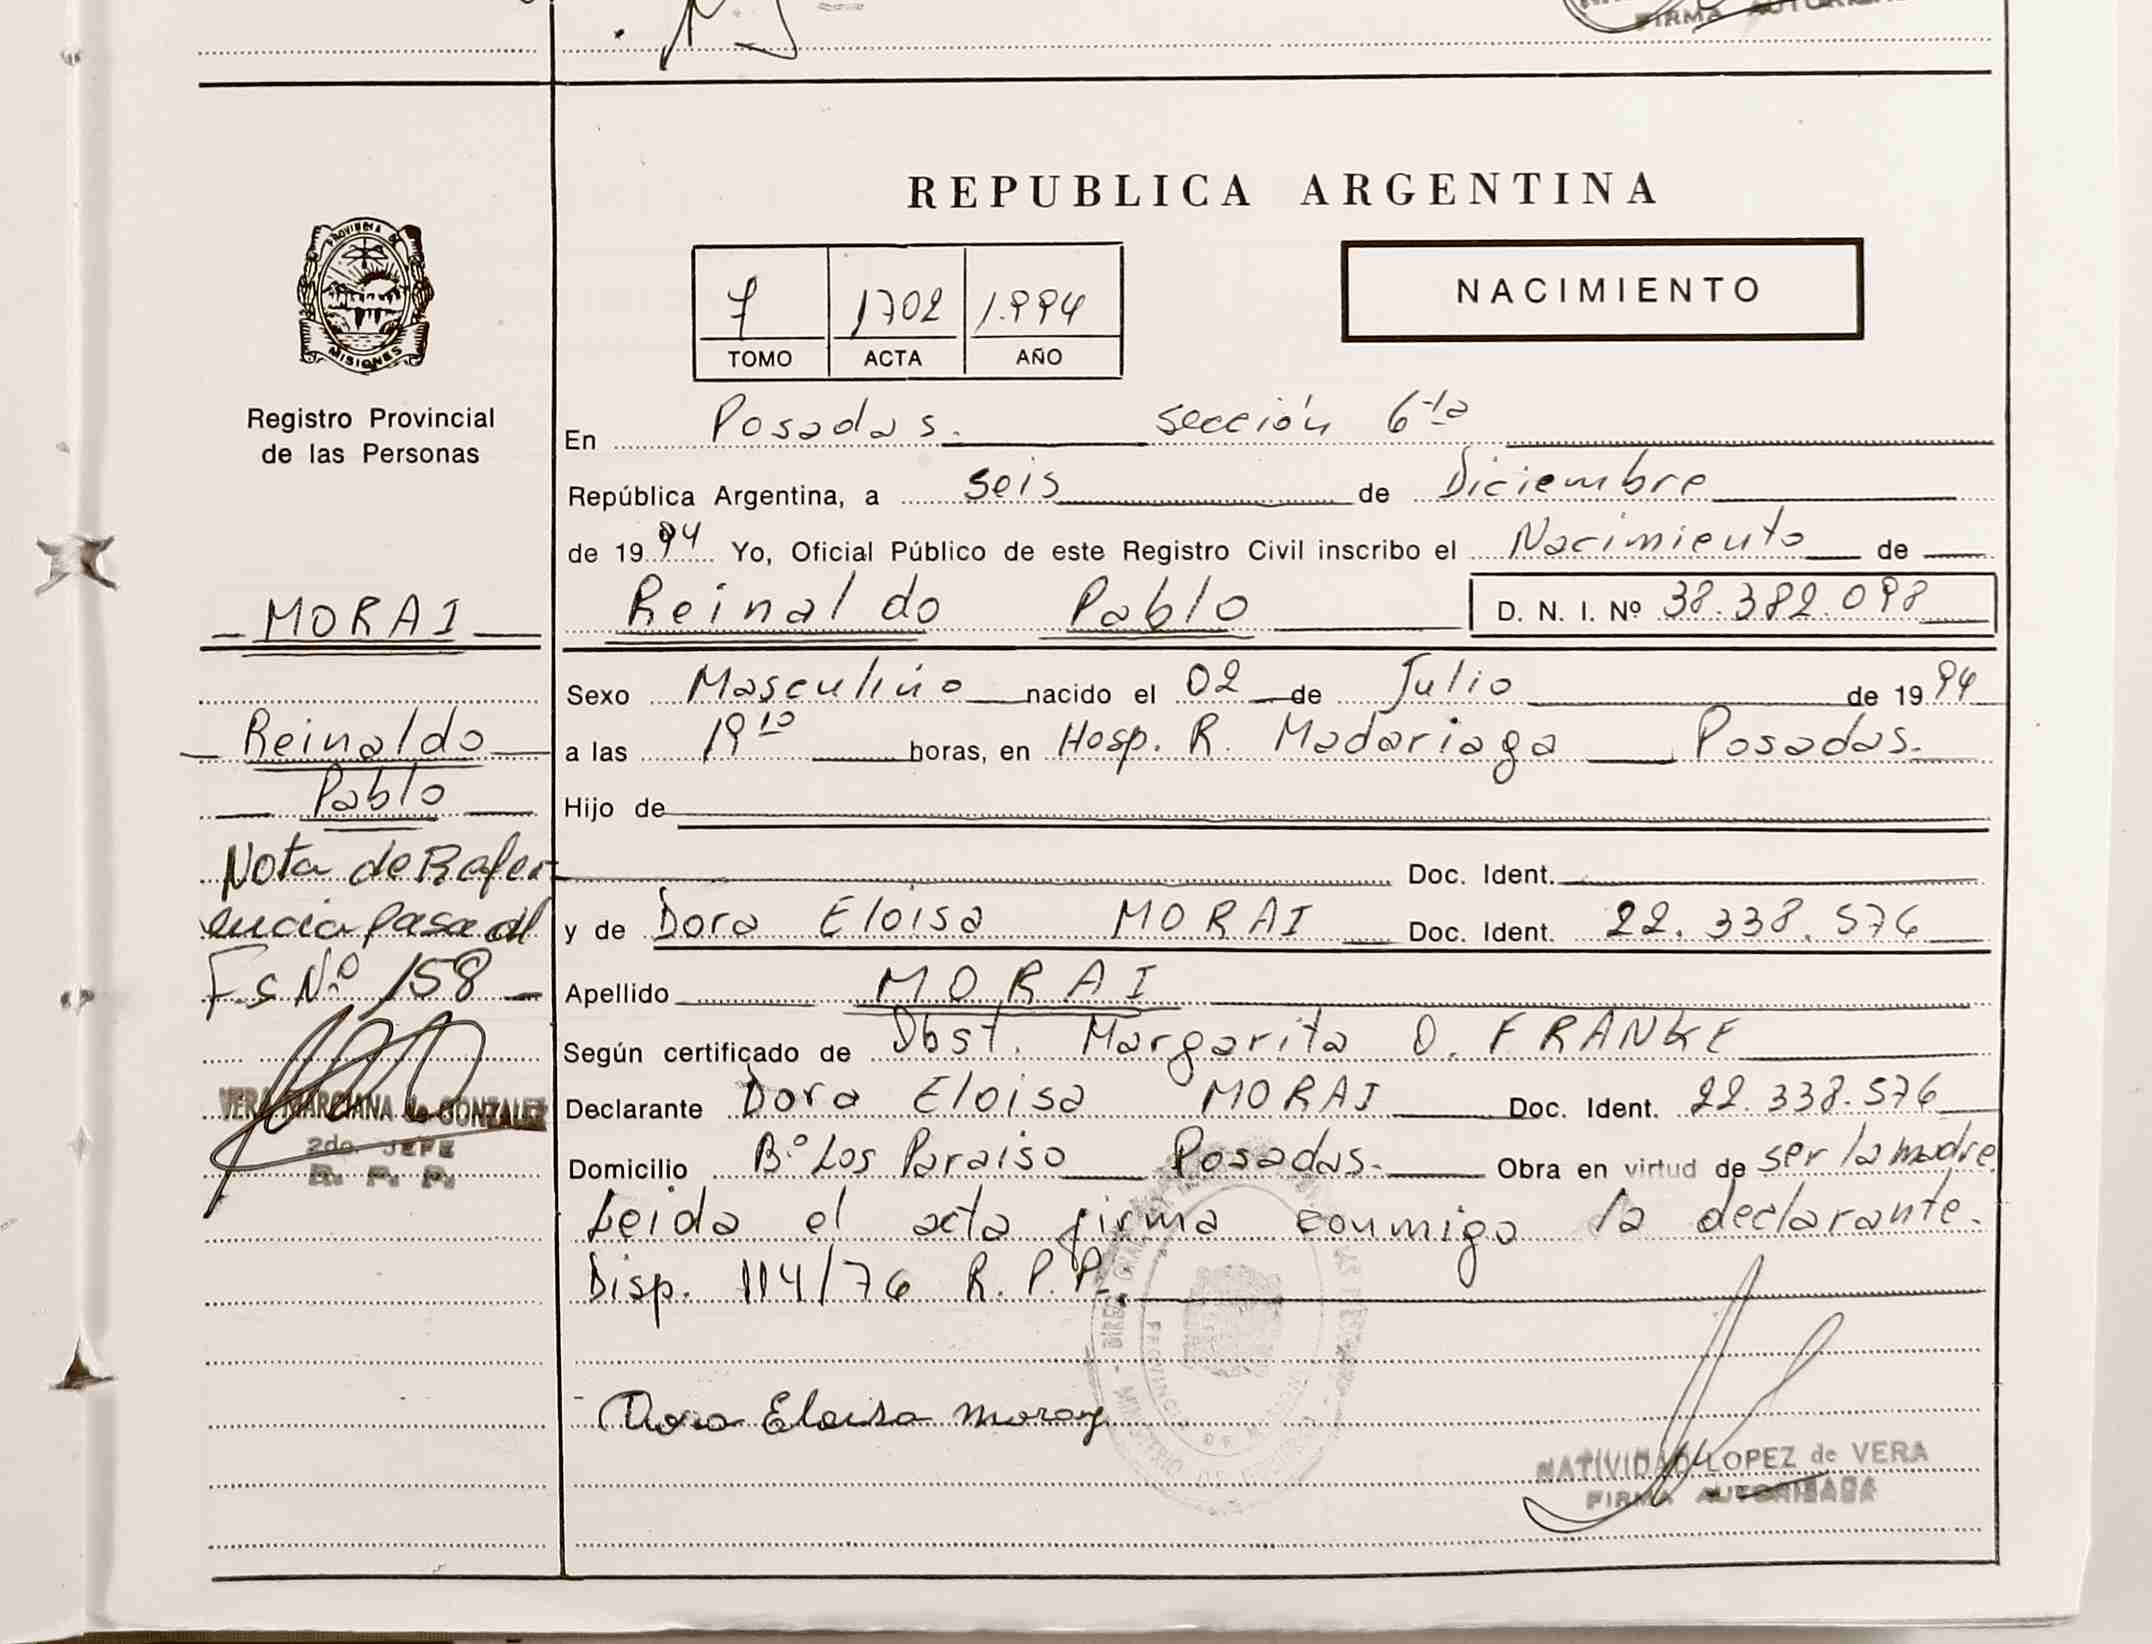 FIRMA AUTORIZADA
REPUBLICA ARGENTINA
PROVINCIA DE
MISIONES
Registro Provincial
de las Personas
7 1702 1.994
TOMO ACTA AÑO
NACIMIENTO
En Posadas. sección 6ta
República Argentina, a seis de Diciembre
de 1994 Yo, Oficial Público de este Registro Civil inscribo el Nacimiento de
MORAI
Reinaldo Pablo D. N. I. Nº 38.382.098
Sexo Masculino nacido el 02 de Julio de 1994
Reinaldo
a las 19 10 horas, en Hosp. R. Madariaga Posadas.
Pablo
Hijo de
Nota de Refer
Doc. Ident.
encia pasa al
y de Dora Eloisa MORAI Doc. Ident. 22.338.576
Fs Nº 158
Apellido MORAI
Según certificado de Obst. Margarita O. FRANKE
VERA MARCIANA de GONZALEZ
2do. JEFE
R. P. P.
Declarante Dora Eloisa MORAI Doc. Ident. 22.338.576
Domicilio Bº Los Paraiso Posadas. Obra en virtud de ser la madre
Leida el acta firma conmigo la declarante.
Disp. 114/76 R.P.P.
Dora Eloisa Moray
NATIVIDAD LOPEZ de VERA
FIRMA AUTORIZADA